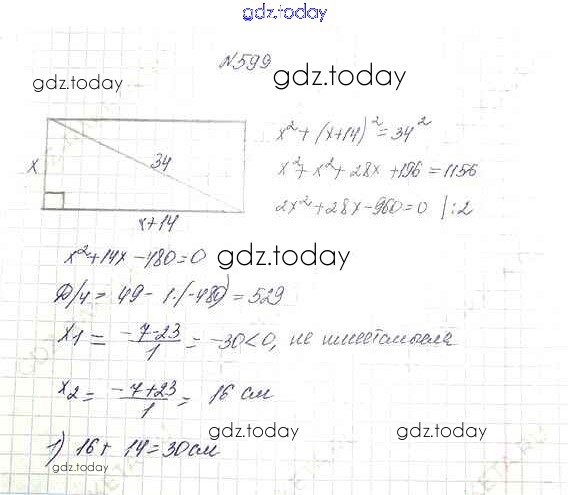 gdz.today
N599
gdz.today gdz.today
x 34
x+14
x² + (x+14)² = 34²
x² + x² + 28x + 196 = 1156
2x² + 28x - 960 = 0 |:2
x² + 14x - 480 = 0 gdz.today
D/4 = 49 - 1·(-480) = 529
x1 = -7-23/1 = -30 < 0, не имеет смысла
x2 = -7+23/1 = 16 см
1) 16 + 14 = 30 см gdz.today gdz.today
gdz.today